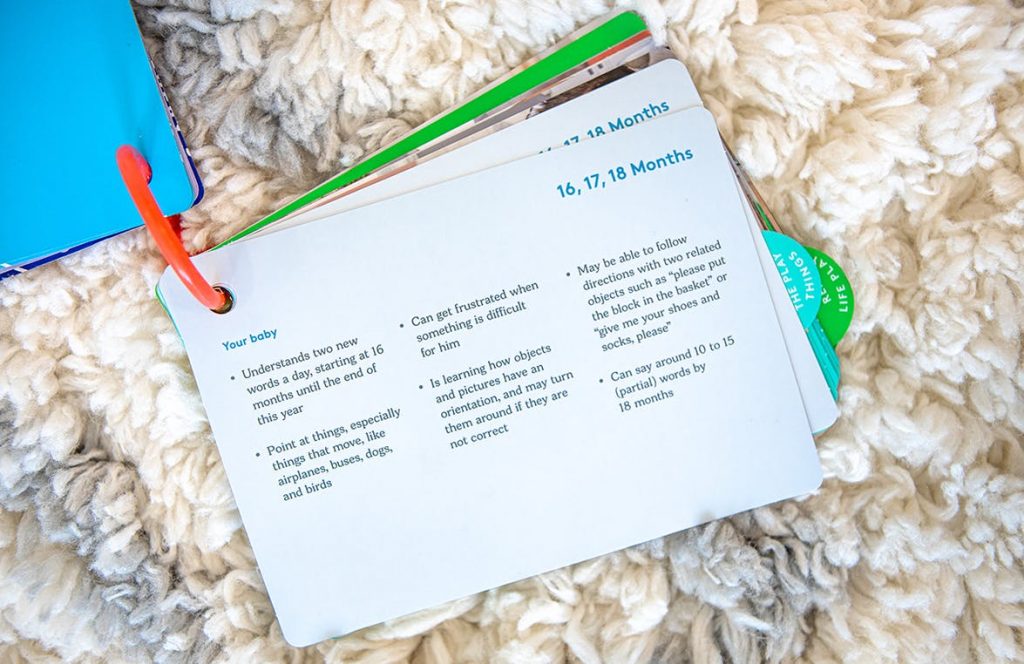 17, 18 Months
16, 17, 18 Months
Your baby
• Understands two new
words a day, starting at 16
months until the end of
this year
• Point at things, especially
things that move, like
airplanes, buses, dogs,
and birds
• Can get frustrated when
something is difficult
for him
• Is learning how objects
and pictures have an
orientation, and may turn
them around if they are
not correct
• May be able to follow
directions with two related
objects such as “please put
the block in the basket” or
“give me your shoes and
socks, please”
• Can say around 10 to 15
(partial) words by
18 months
THE PLAY
THINGS
LIFE